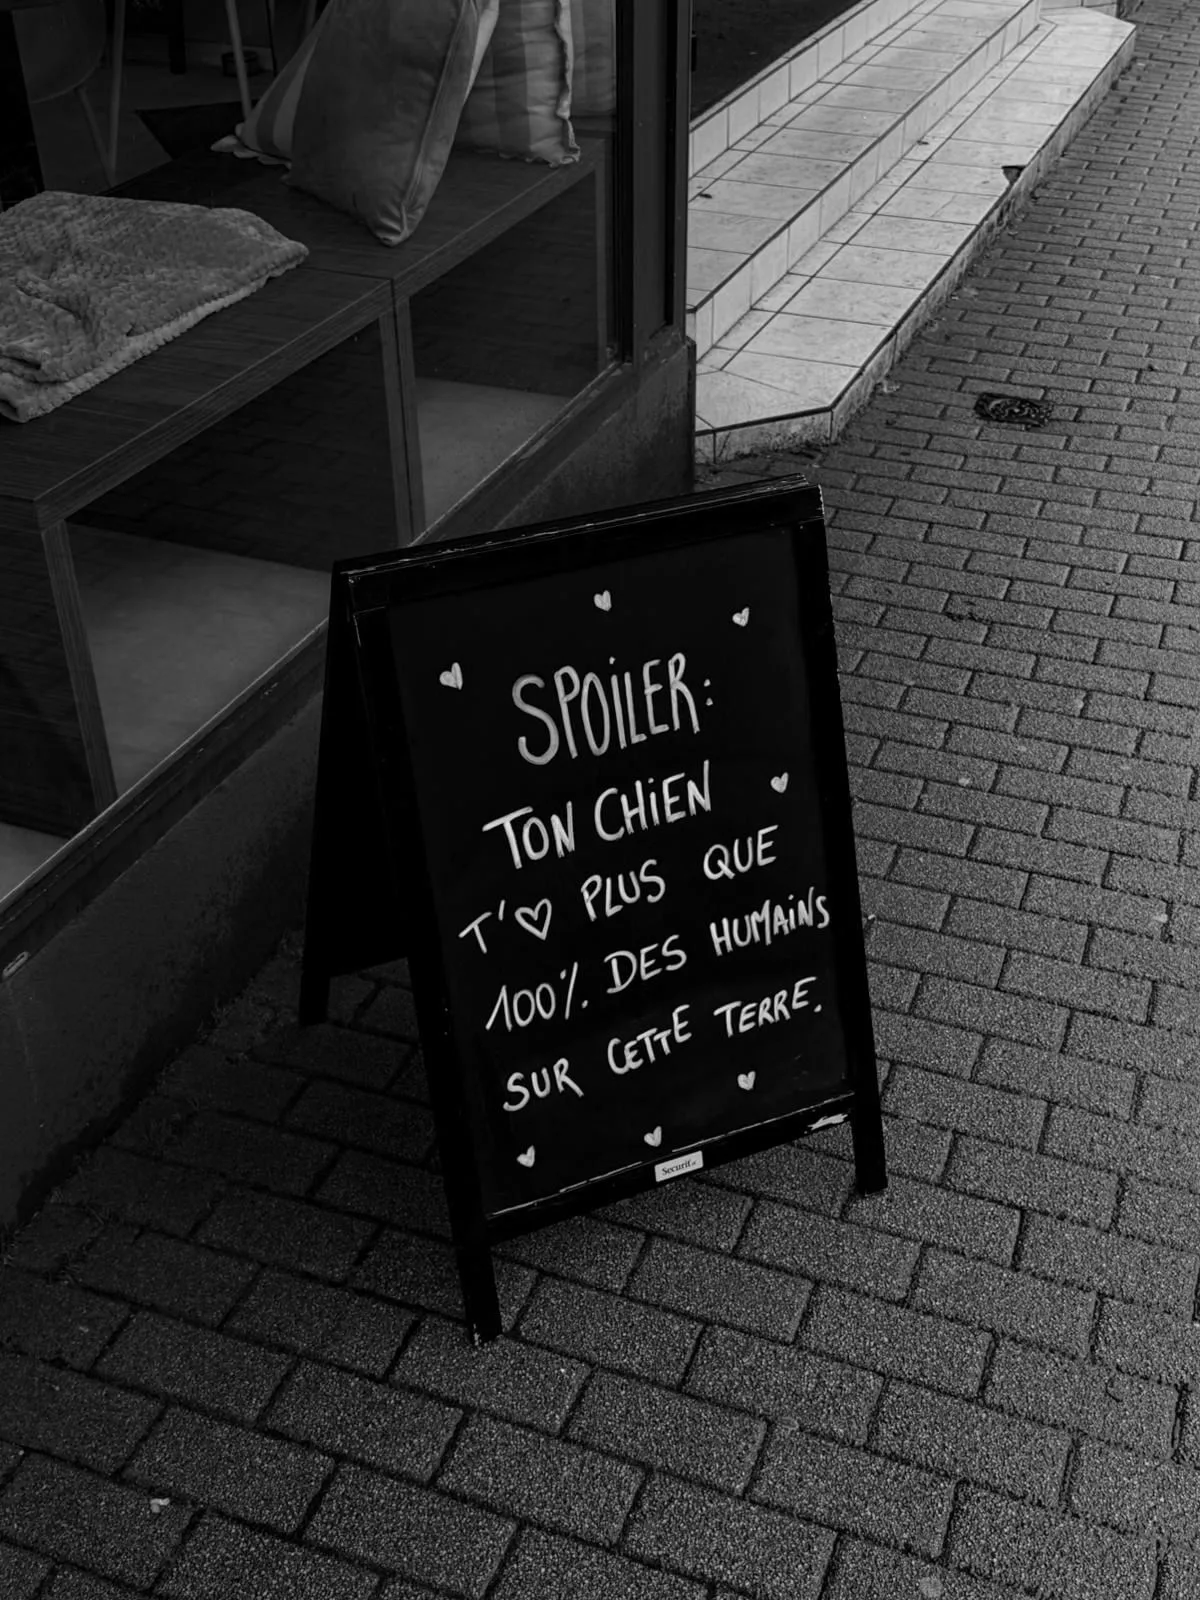 SPOILER:
TON CHIEN
T'♡ PLUS QUE
100% DES HUMAINS
SUR CETTE TERRE.
Securit